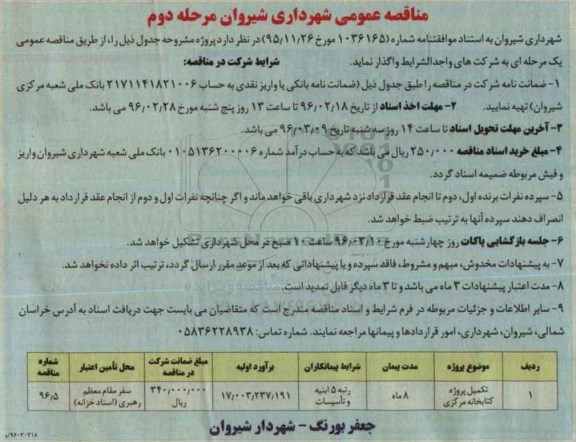 مناقصه عمومی شهرداری شیروان مرحله دوم
شهرداری شیروان به استناد موافقتنامه شماره (۱۰۳۶۱۶۵ مورخ ۹۵/۱۱/۲۶) در نظر دارد پروژه مشروحه جدول ذیل را، از طریق مناقصه عمومی
یک مرحله ای به شرکت های واجدالشرایط واگذار نماید. شرایط شرکت در مناقصه:
۱- ضمانت نامه شرکت در مناقصه را طبق جدول ذیل (ضمانت نامه بانکی یا واریز نقدی به حساب ۲۱۷۱۱۴۱۸۲۱۰۰۶ بانک ملی شعبه مرکزی
شیروان) تهیه نمایید. ۲- مهلت اخذ اسناد از تاریخ ۹۶/۰۲/۱۸ تا ساعت ۱۳ روز پنج شنبه مورخ ۹۶/۰۲/۲۸ می باشد.
۳- آخرین مهلت تحویل اسناد تا ساعت ۱۴ روز سه شنبه تاریخ ۹۶/۰۳/۰۹ می باشد.
۴- مبلغ خرید اسناد مناقصه ۲۵۰/۰۰۰ ریال می باشد که به حساب درآمد شماره ۰۱۰۵۱۳۶۲۰۰۰۰۶ بانک ملی شعبه شهرداری شیروان واریز
و فیش مربوطه ضمیمه اسناد گردد.
۵- سپرده نفرات برنده اول، دوم تا انجام عقد قرارداد نزد شهرداری باقی خواهد ماند و اگر چنانچه نفرات اول و دوم از انجام عقد قرارداد به هر دلیل
انصراف دهند سپرده آنها به ترتیب ضبط خواهد شد.
۶- جلسه بازگشایی پاکات روز چهارشنبه مورخ ۹۶/۰۳/۱۰ ساعت ۱۰ صبح در محل شهرداری تشکیل خواهد شد.
۷- به پیشنهادات مخدوش، مبهم و مشروط، فاقد سپرده و یا پیشنهاداتی که بعد از موعد مقرر ارسال گردد، ترتیب اثر داده نخواهد شد.
۸- مدت اعتبار پیشنهادات ۳ ماه می باشد و تا ۳ ماه دیگر قابل تمدید است.
۹- سایر اطلاعات و جزئیات مربوطه در فرم شرایط و اسناد مناقصه مندرج است که متقاضیان می بایست جهت دریافت اسناد به آدرس خراسان
شمالی، شیروان، شهرداری، امور قراردادها و پیمانها مراجعه نمایند. شماره تماس: ۰۵۸۳۶۲۲۸۹۳۸
ردیف موضوع پروژه مدت پیمان شرایط پیمانکاران برآورد اولیه مبلغ ضمانت شرکت در مناقصه محل تأمین اعتبار شماره مناقصه
۱ تکمیل پروژه کتابخانه مرکزی ۸ ماه رتبه ۵ ابنیه و تأسیسات ۱۷/۰۰۳/۲۳۷/۱۹۱ ۳۴۰/۰۰۰/۰۰۰ ریال سفر مقام معظم رهبری (اسناد خزانه) ۹۶/۵
جعفر یورنگ - شهردار شیروان